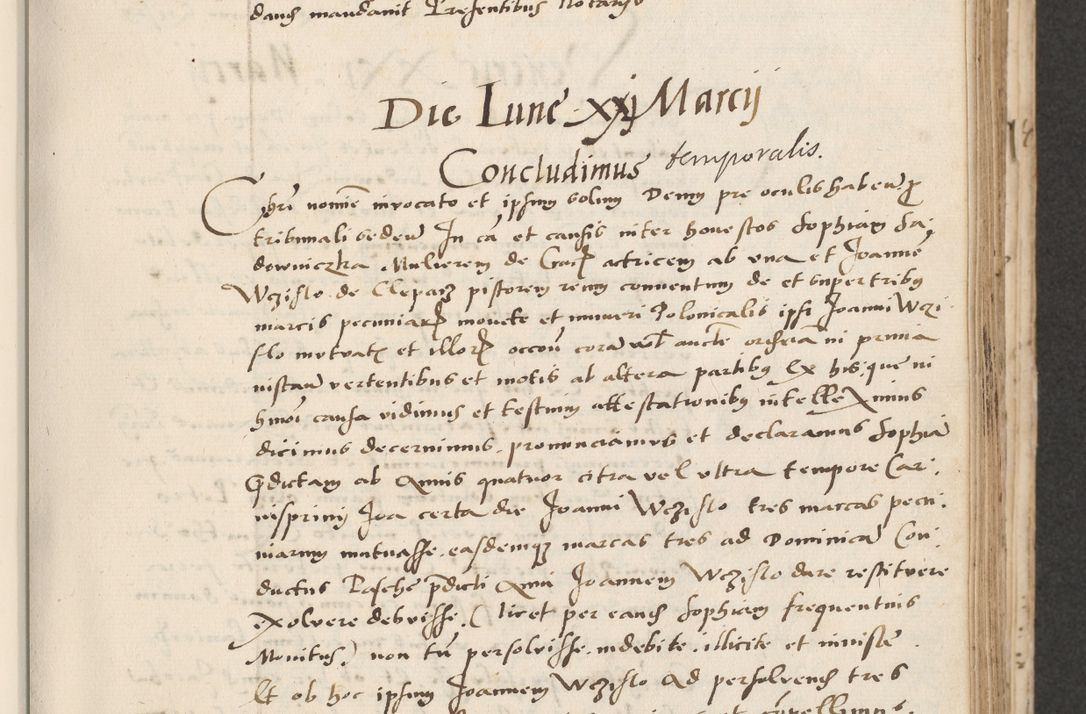 dans mandavit Presentibus Notarys
Die Lune xxj Marcij
Concludimus temporalis.
Chri nomine invocato et ipsum solum Deum pre oculis haben pro
tribunali seden In ca et causis inter honestos Sophiam Sa,
downiczka Mulierem de Crac actricem ab una et Joanne
Wczislo de Clepacz pistorem reum conventum de et super tribus
marcis pecuniar monete et numeri Polonicalis ipsi Joanni Wczi
slo mutuatis et illor occon cora actis in prima
instan vertentibus et motis ab altera partibus Ex his que in
hmoi causa vidimus et testium attestationibus intelleximus
dicimus decernimus pronunciamus et declaramus Sophia
pdictam ab Annis quatuor citra vel ultra tempore Car,
nisprivij Joa certa die Joanni Wczislo tres marcas pecu,
niarum mutuasse easdemque marcas tres ad Dominica Con,
ductus Pasche pdicti Anni Joannem Wczislo dare restituere
exolvere debuisse. (licet per eandem Sophiam frequentius
Monitus) non tn persolvisse indebite illicite et iniuste
Et ob hoc ipsum Joannem Wczislo ad persolvend tres
et compellimus.